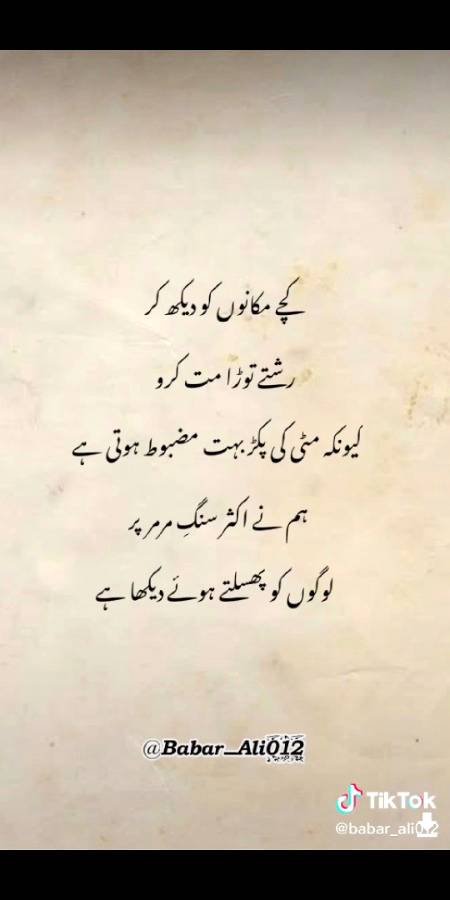 کچے مکانوں کو دیکھ کر
رشتے توڑا مت کرو
کیونکہ مٹی کی پکڑ بہت مضبوط ہوتی ہے
ہم نے اکثر سنگِ مرمر پر
لوگوں کو پھسلتے ہوئے دیکھا ہے
@Babar_Ali012
TikTok
@babar_ali012